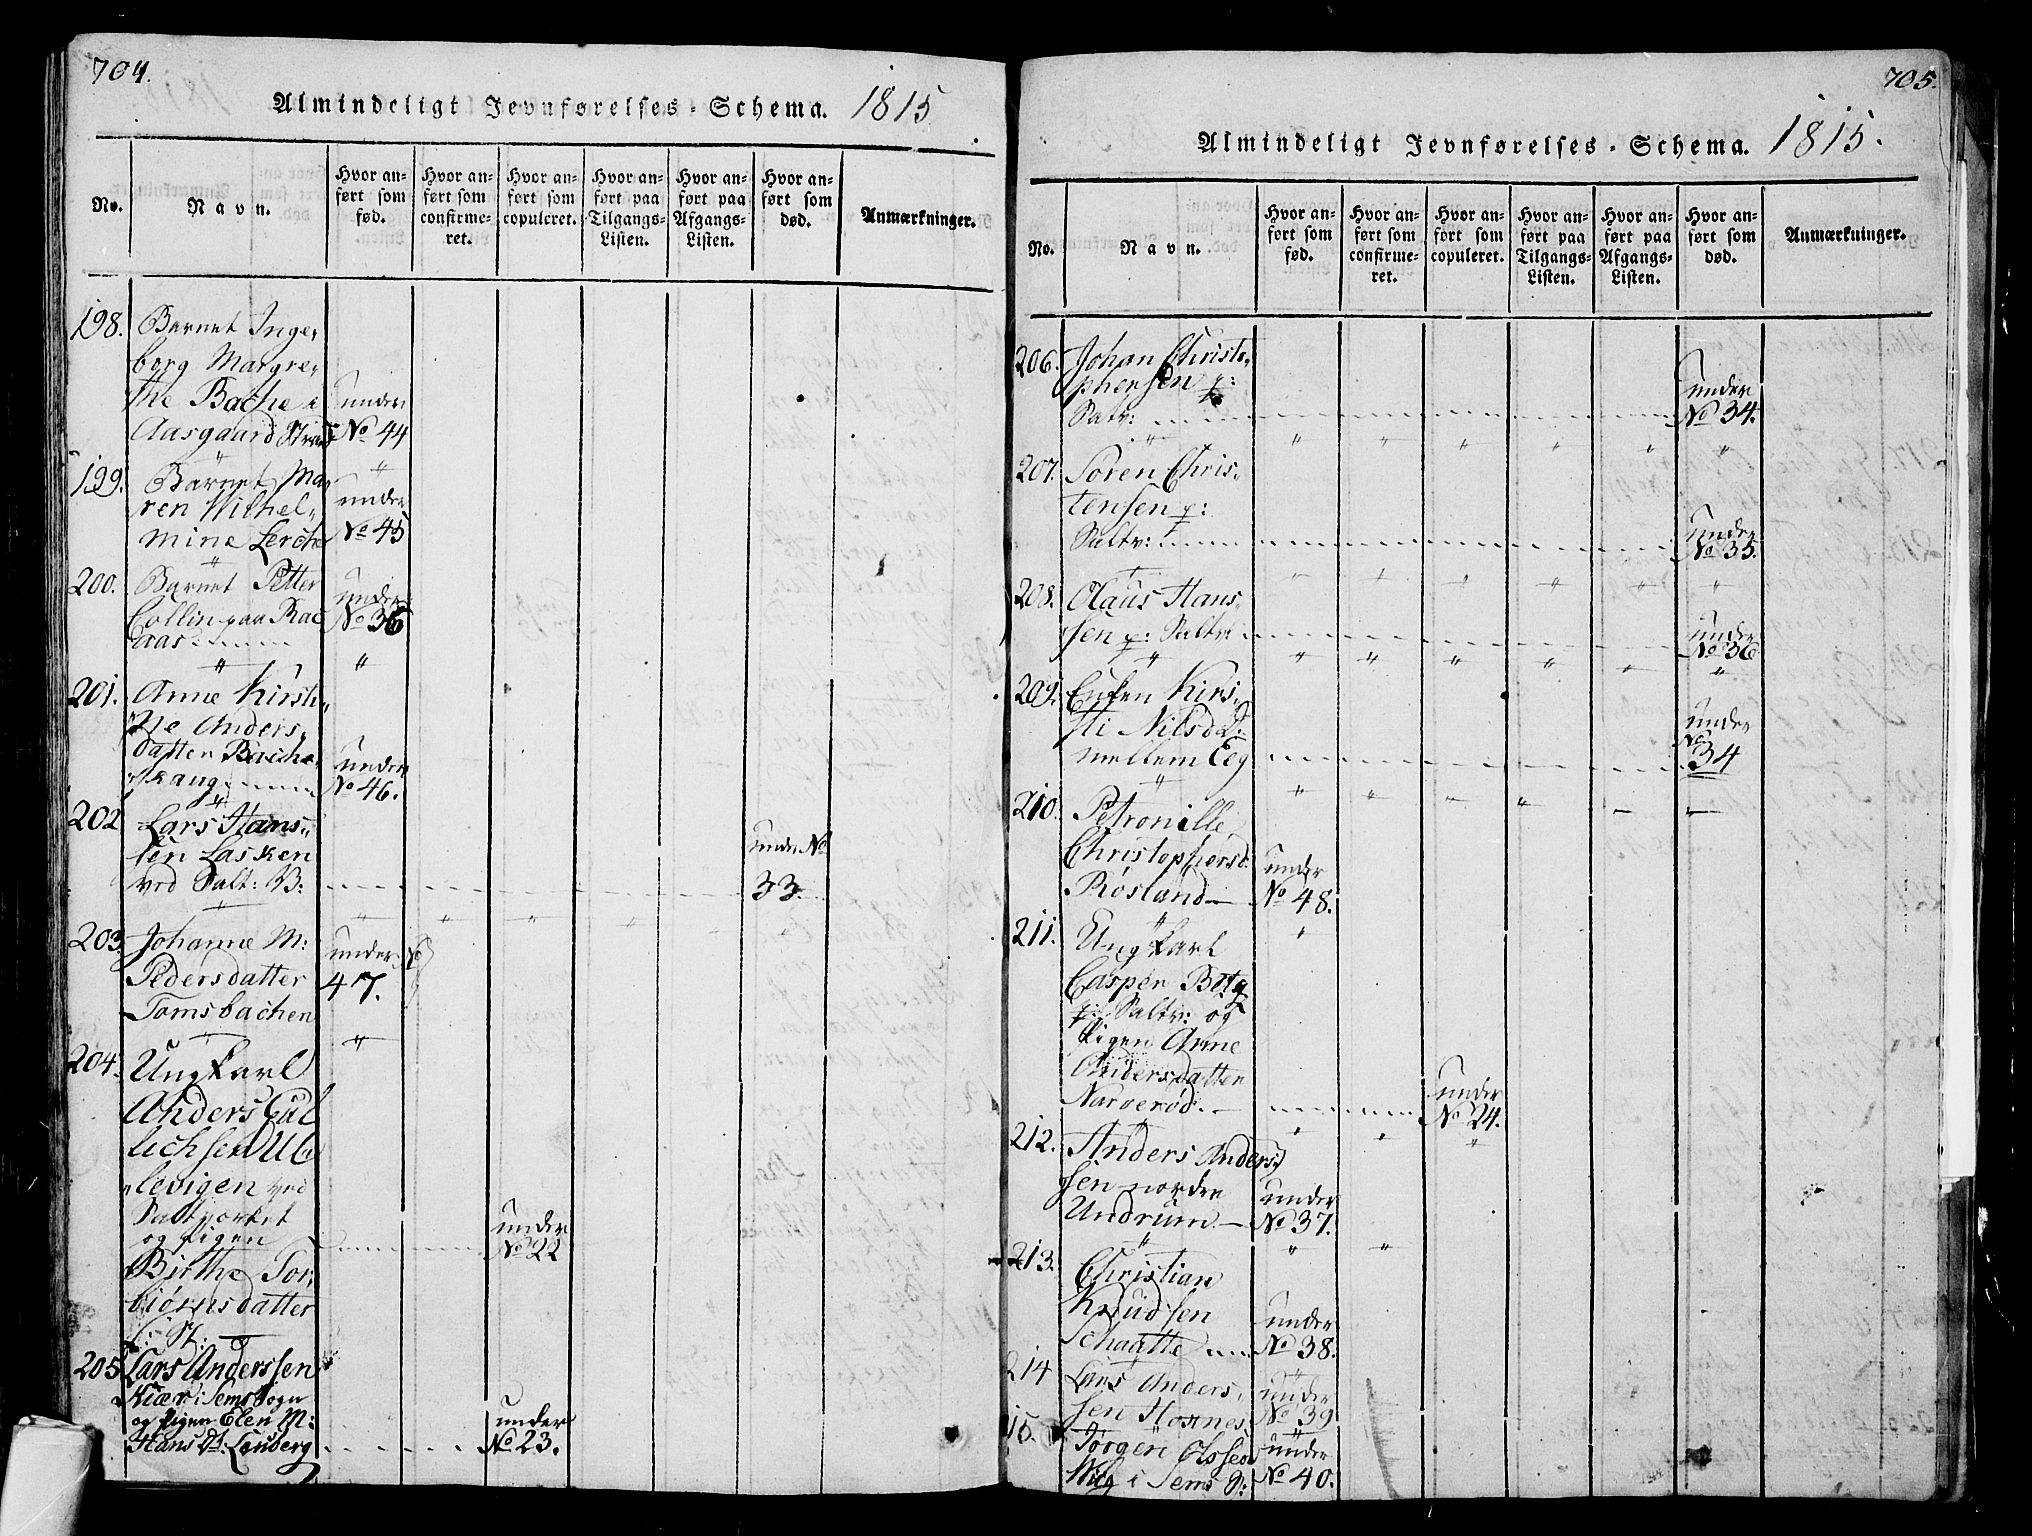 704.
Almindeligt Jevnførelses-Schema. 1815
No.
Navn.
Hvor an-
ført som
fød.
Hvor an-
ført som
confirme-
ret.
Hvor an-
ført som
copuleret.
Hvor an-
ført paa
Tilgangs-
Listen.
Hvor an-
ført paa
Afgangs-
Listen.
Hvor an-
ført som
død.
Anmærkninger.
198. Barnet Inge„
borg Margre„
the Bache i
under
Aasgaard Strand No 44
199. Barnet Ma„
ren Wilhel„
under
mine Lerche No 45
200. Barnet Petter
Collin paa Bac
under
No 36
aas
201. Anne Kirsti„
ne Anders„
datter Bache
under
skaug No 46.
202 Lars Hans„
sen Lasken
under No
ved Salt: B: 33.
203. Johanne M:
under No
Pedersdatter 47.
Tomsbachen
204. Ungkarl
Anders Gul
lichsen Ul
levigen ved
Saltverket
og Pigen
under
No 22
Birthe Tor„
biørnsdatter
i St:
205 Lars Anderssen
Kiær i Sems Sogn
og Pigen Elen M: under
Hans Dt: Lenberg No 23.
705.
Almindeligt Jevnførelses-Schema. 1815.
No.
Navn.
Hvor an-
ført som
fød.
Hvor an-
ført som
confirme-
ret.
Hvor an-
ført som
copuleret.
Hvor an-
ført paa
Tilgangs-
Listen.
Hvor an-
ført paa
Afgangs-
Listen.
Hvor an-
ført som
død.
Anmærkninger.
206. Johan Christo„
phersen p:
under
Saltv: No 34.
207. Soren Chris„
tensen p:
under
Saltv: No 35.
208. Claus Hans„
sen p: Saltv:
under
No 36
209. Enken Kirs„
ti Nilsd D:
under
No
mellem Eeg 34
210. Petronille
Christophersd:
under
Røsland No 48.
211. Ungkarl
Casper Berg
p: Saltv: og
Pigen Anne
Andersdatter
under
Narverød. No 24.
212. Anders Anders„
sen nordre
under
Undrum No 37.
213. Christian
Knudsen
under
Schaatte No 38.
214 Lars Anders„
under
sen Hosnes No 39
15. Jørgen Olssen
under
i Sems P: No 40.